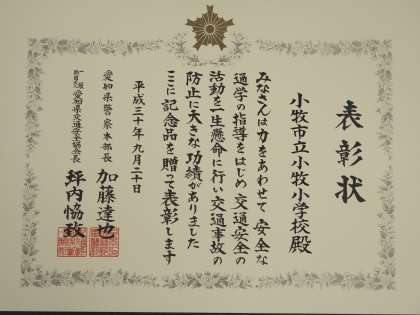 表彰状
小牧市立小牧小学校殿
みなさんは力をあわせて 安全な
通学の指導をはじめ 交通安全の
活動を一生懸命に行い交通事故の
防止に大きな功績がありました
ここに記念品を贈って表彰します
平成三十年九月二十日
愛知県警察本部長 加藤達也
愛知県交通安全協会会長 坪内恊致